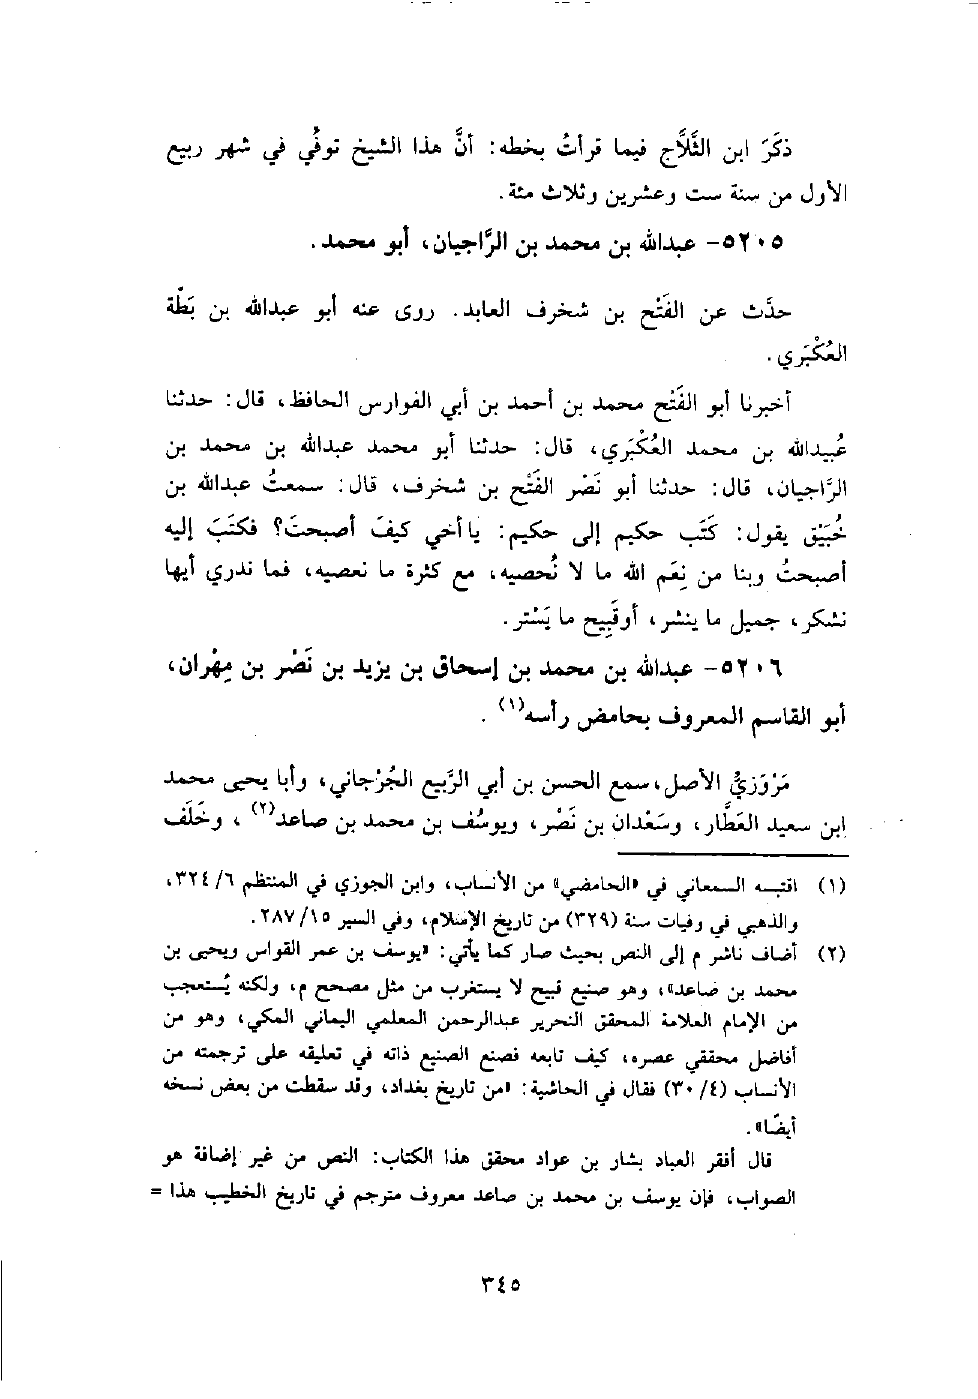 ذكَرَ ابن الثَّلَّاج فيما قرأتُ بخطه: أنَّ هذا الشيخ توفُي في شهر ربيع
الأول من سنة ست وعشرين وثلاث مئة.
٥٢٠٥- عبدالله بن محمد بن الرَّاجيان، أبو محمد.
حدَّث عن الفَتْح بن شخرف العابد. روى عنه أبو عبدالله بن بَطّة
العُكْبَري.
أخبرنا أبو الفَتْح محمد بن أحمد بن أبي الفوارس الحافظ، قال: حدثنا
عُبيدالله بن محمد العُكْبَري، قال: حدثنا أبو محمد عبدالله بن محمد بن
الرَّاجيان، قال: حدثنا أبو نَصْر الفَتْح بن شخرف، قال: سمعتُ عبدالله بن
خُبَيْق يقول: كَتَب حكيم إلى حكيم: يا أخي كيفَ أصبحتَ؟ فكتَبَ إليه
أصبحتُ وبنا من نِعَم الله ما لا نُحصيه، مع كثرة ما نعصيه، فما ندري أيها
نشكر، جميل ما ينشر، أوقَبِيح ما يَسْتر.
٥٢٠٦- عبدالله بن محمد بن إسحاق بن يزيد بن نَصْر بن مِهْران،
أبو القاسم المعروف بحامض رأسه(١).
مَرْوَزيُّ الأصل، سمع الحسن بن أبي الرَّبيع الجُرْجاني، وأبا يحيى محمد
ابن سعيد العَطَّار، وسَعْدان بن نَصْر، ويوسُف بن محمد بن صاعد(٢)، وخَلَف
(١) اقتبسه السمعاني في «الحامضي» من الأنساب، وابن الجوزي في المنتظم ٦/ ٣٢٤،
والذهبي في وفيات سنة (٣٢٩) من تاريخ الإسلام، وفي السير ١٥/ ٢٨٧.
(٢) أضاف ناشر م إلى النص بحيث صار كما يأتي: «يوسف بن عمر القواس ويحيى بن
محمد بن صاعد»، وهو صنيع قبيح لا يستغرب من مثل مصحح م، ولكنه يُستعجب
من الإمام العلامة المحقق النحرير عبدالرحمن المعلمي اليماني المكي، وهو من
أفاضل محققي عصره، كيف تابعه فصنع الصنيع ذاته في تعليقه على ترجمته من
الأنساب (٤/ ٣٠) فقال في الحاشية: «من تاريخ بغداد، وقد سقطت من بعض نسخه
أيضًا».
قال أفقر العباد بشار بن عواد محقق هذا الكتاب: النص من غير إضافة هو
الصواب، فإن يوسف بن محمد بن صاعد معروف مترجم في تاريخ الخطيب هذا =
٣٤٥